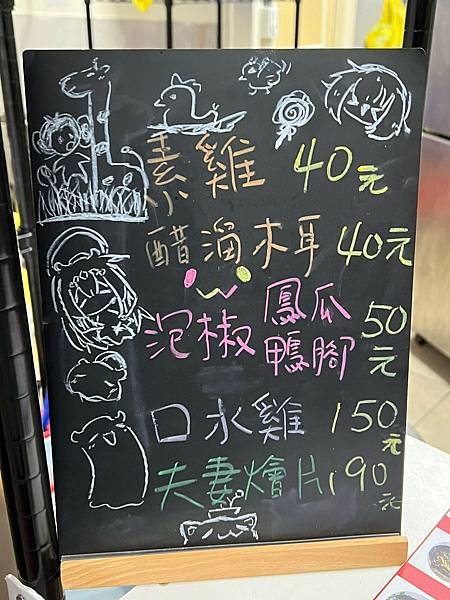 素雞 40元
醋溜木耳 40元
泡椒 鳳爪 鴨腳 50元
口水雞 150元
夫妻燴片 190元